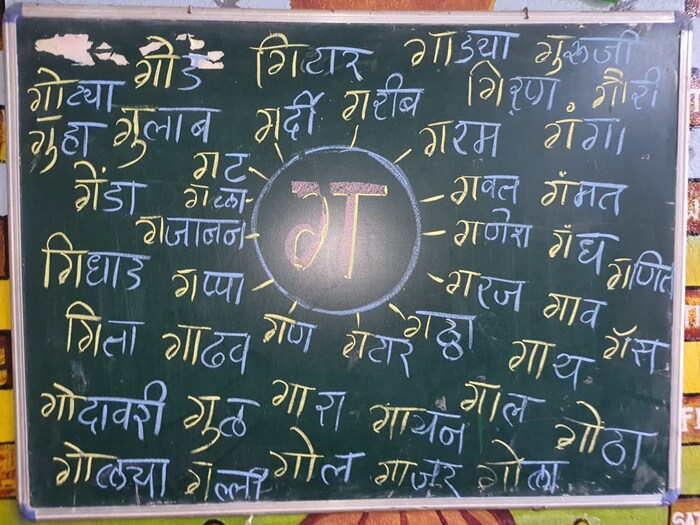 गोड गिटार गाड्या गुरूजी
गोट्या गिरण गौरी
गुहा गुलाब गर्दी गरीब गरम गंगा
गट
गेंडा गळा गवत गंमत
गजानन ग गणेश गंध गणित
गिधाड गप्पा गरज गाव
गिता गाढव गण गटार गठ्ठा गाय गॅस
गोदावरी गुळ गारा गायन गाल गोठा
गोळ्या गल्ली गोल गाजर गोळा